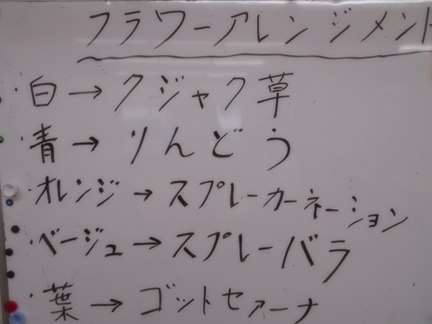 フラワーアレンジメント
・白→クジャク草
・青→りんどう
・オレンジ→スプレーカーネーション
・ベージュ→スプレーバラ
・葉→ゴットセァーナ